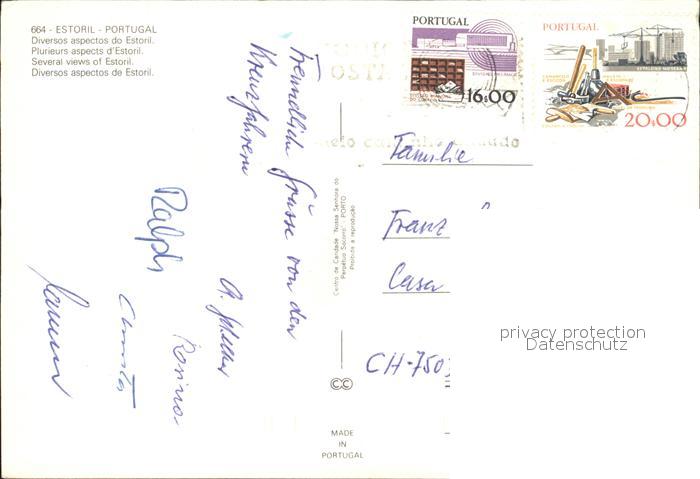 664 - ESTORIL - PORTUGAL
Diversos aspectos do Estoril.
Plurieurs aspects d'Estoril.
Several views of Estoril.
Diversos aspectos de Estoril.
PORTUGAL
16$00
PORTUGAL
20$00
Freundliche Grüsse von den
Kreuzfahrern
Ralph
Karina
Christa
Centro de Caridade "Nossa Senhora do
Perpétuo Socorro" - PORTO
Proibida a reprodução
CC
MADE
IN
PORTUGAL
Familie
Franz
Casa
CH-750
privacy protection
Datenschutz